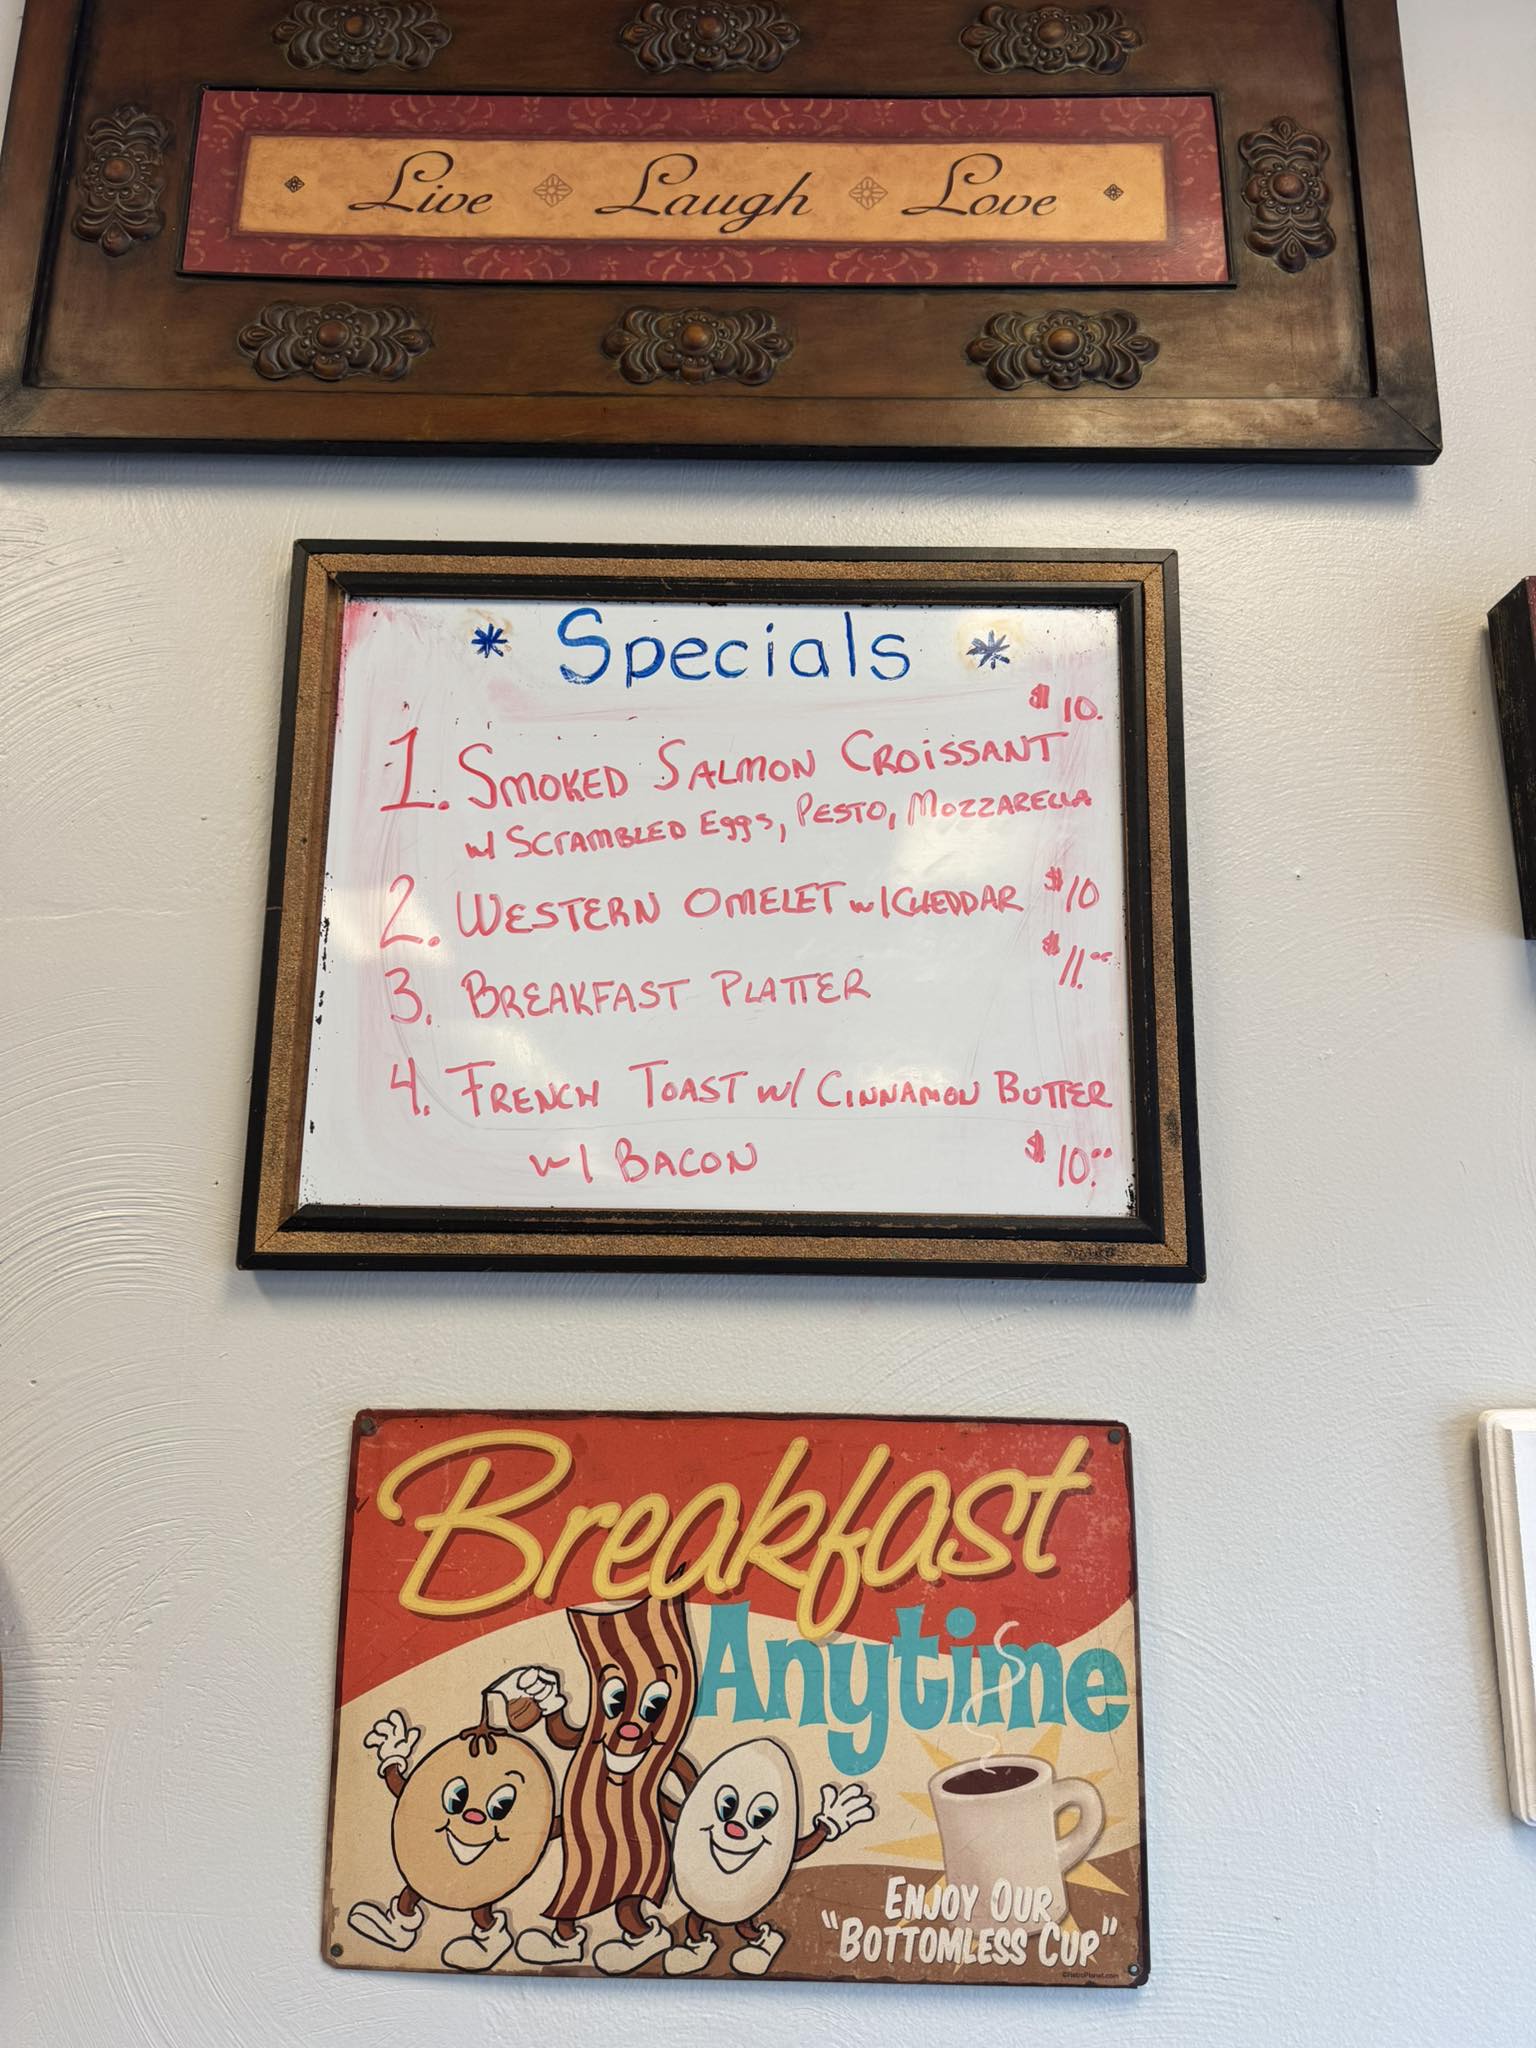 Live Laugh Love
* Specials *
$10.
1. SMOKED SALMON CROISSANT
w/ SCRAMBLED EGGS, PESTO, MOZZARELLA
2. WESTERN OMELET w/CHEDDAR $10
3. BREAKFAST PLATTER $11.00
4. FRENCH TOAST w/ CINNAMON BUTTER
w/ BACON $10.00
Breakfast
Anytime
ENJOY OUR
"BOTTOMLESS CUP"
©RetroPlanet.com